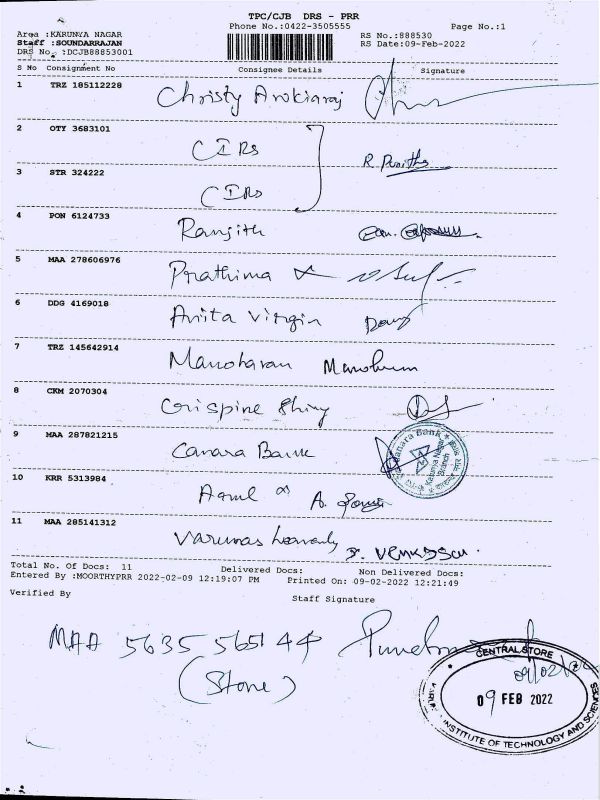 TPC/CJB DRS - PRR
Phone No.:0422-3505555 Page No.:1
Area :KARUNYA NAGAR RS No.:888530
Staff :SOUNDARRAJAN RS Date:09-Feb-2022
DRS No. :DCJB88853001
S No Consignment No Consignee Details Signature
1 TRZ 185112228 Christy Arokiaraj
2 OTY 3683101 CIRs
R. Punitha
3 STR 324222 CIRs
4 PON 6124733 Ranjith
5 MAA 278606976 Prathima
6 DDG 4169018 Anita Virgin
7 TRZ 145642914 Manoharan
8 CKM 2070304 Crispine Shiny
9 MAA 287821215 Canara Bank
Canara Bank
Karunya Nagar
Branch
10 KRR 5313984
11 MAA 285141312
Total No. Of Docs: 11 Delivered Docs: Non Delivered Docs:
Entered By :MOORTHYPRR 2022-02-09 12:19:07 PM Printed On: 09-02-2022 12:21:49
Verified By Staff Signature
MAA 563556514 4
(Store) 09/02/22
CENTRAL STORE
09 FEB 2022
INSTITUTE OF TECHNOLOGY AND SCIENCES